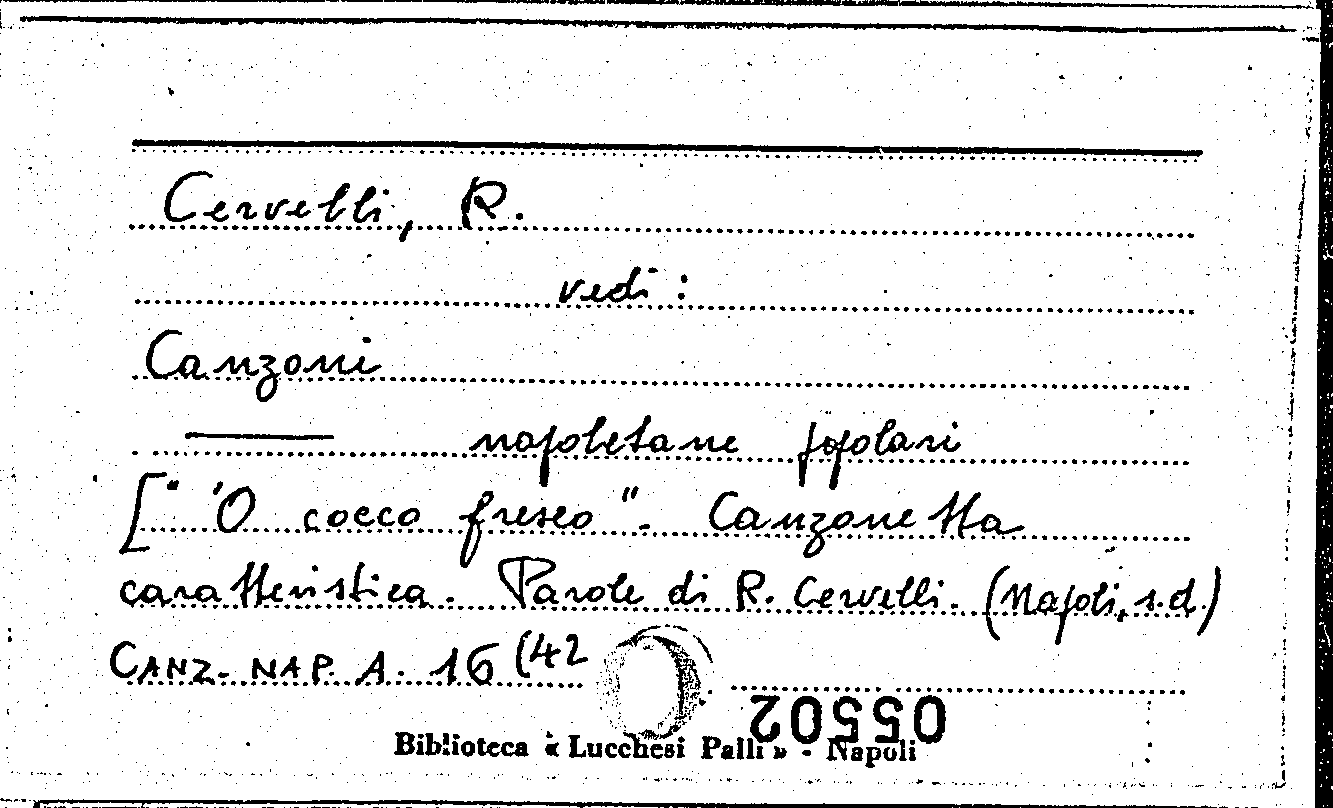 Cervelli, R.
vedi :
Canzoni
——— napoletane popolari
[" 'O cocco fresco". Canzonetta
caratteristica. Parole di R. Cervelli. (Napoli, s.d.)
CANZ. NAP. A. 16 (42
05502
Biblioteca « Lucchesi Palli » - Napoli